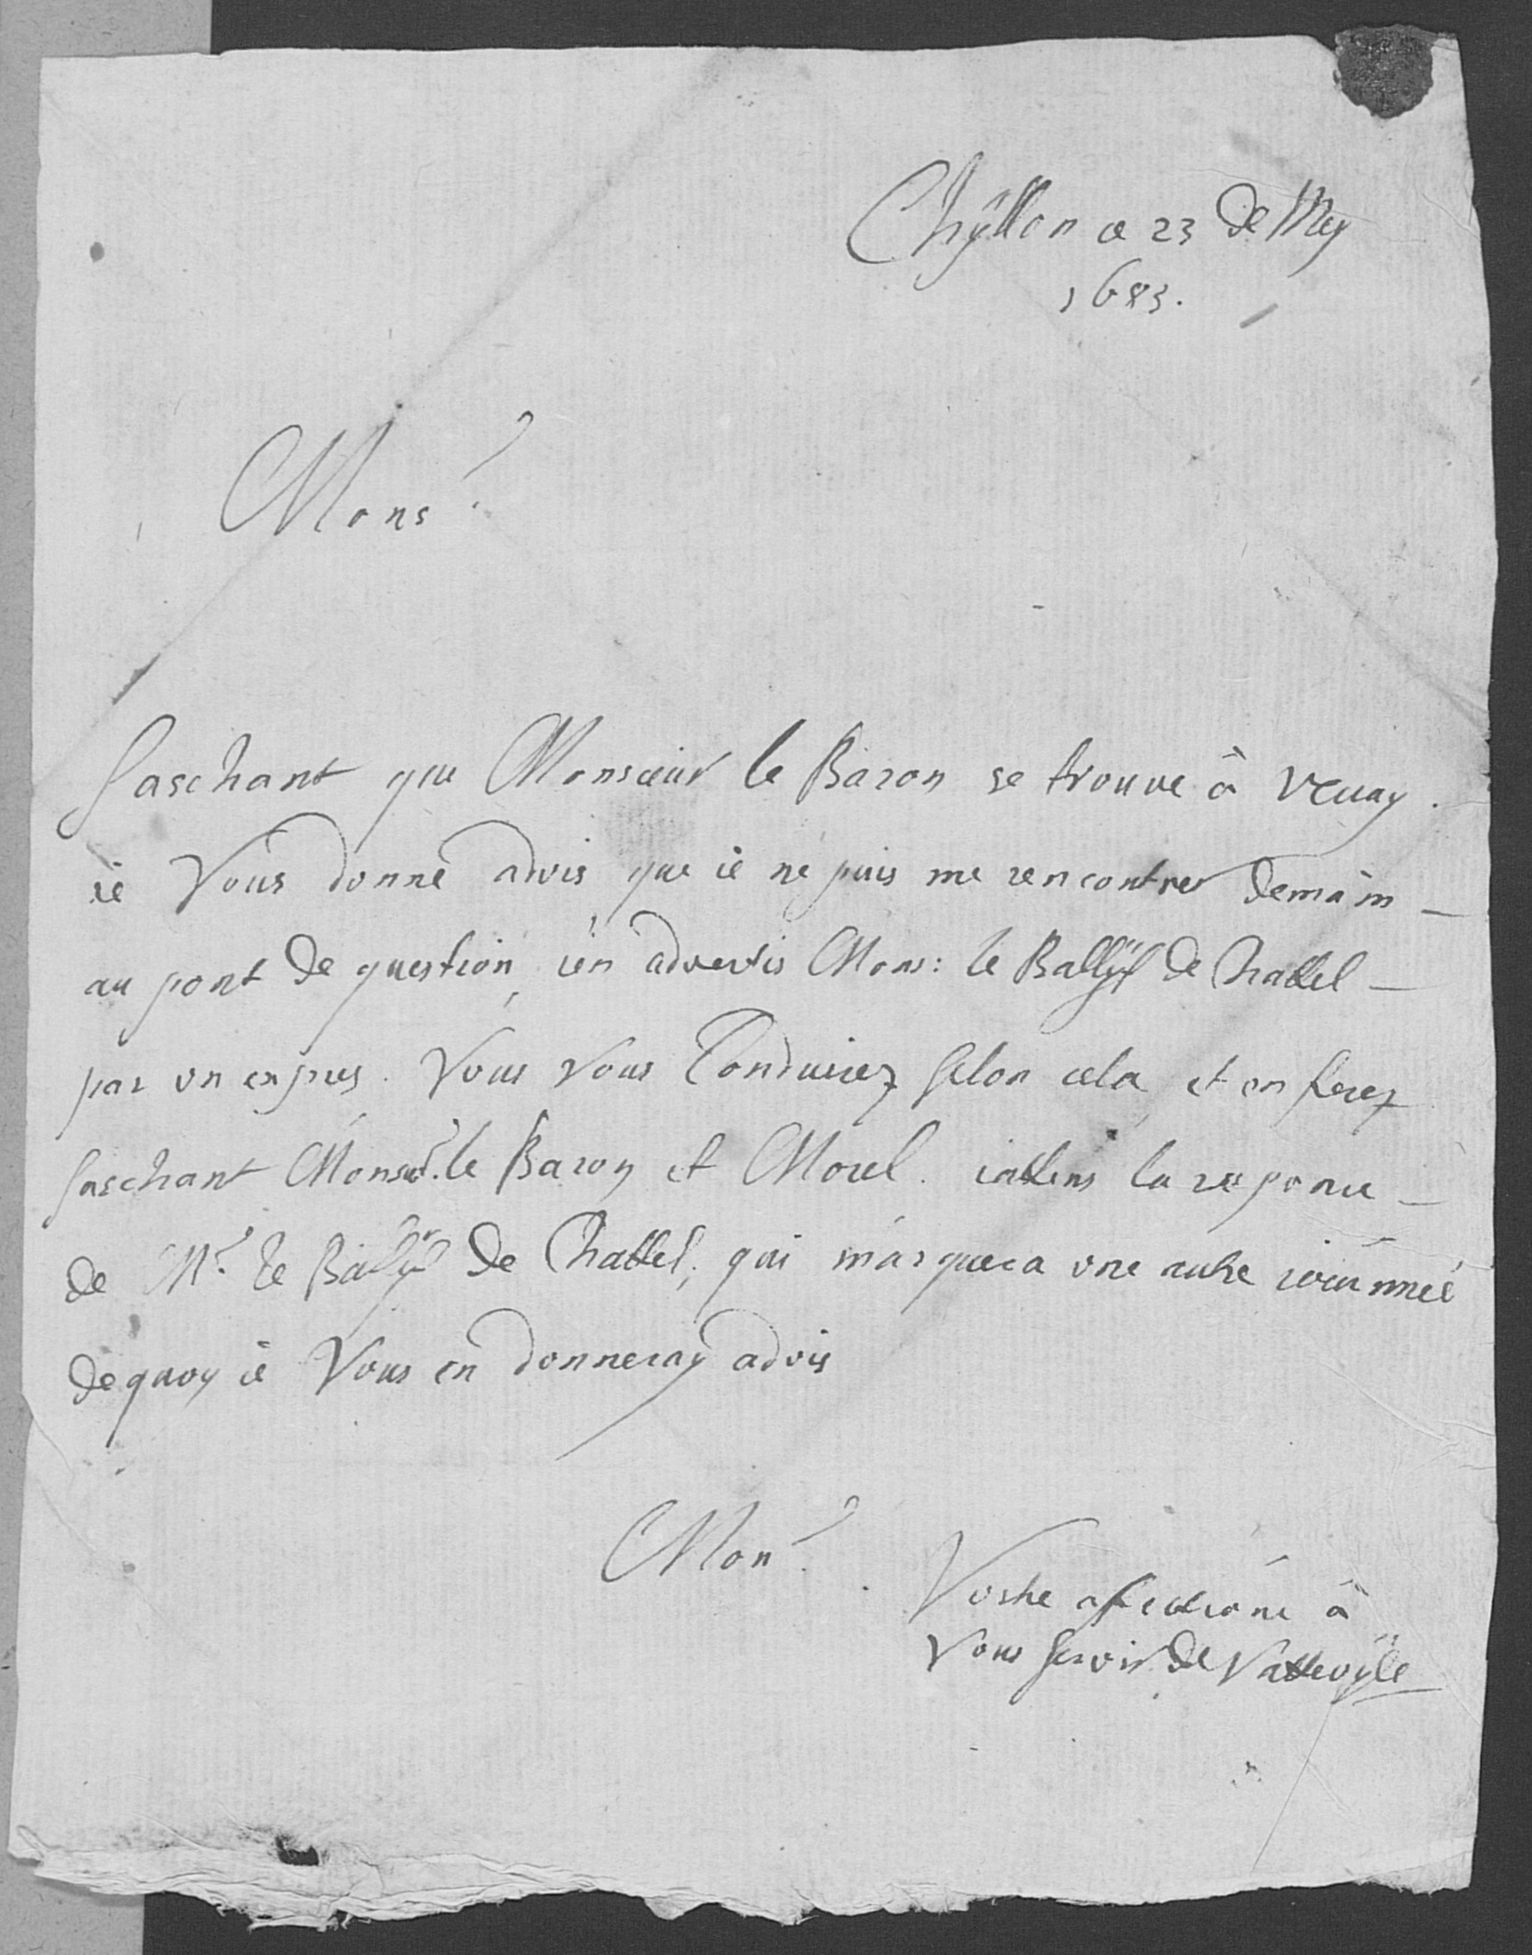 Chÿllon ce 23 de Mey
1683.
Monsr
Saschant que Monsieur le Baron se trouve à Vevay.
ie Vous donne advis que ie ne puis me rencontrer demain
au pont de question, i'en advertis Mons: le Ballÿf de Chattel
par un expres. Vous Vous Conduirez selon cela et en ferez
saschant Monsr. le Baron et Morel. iattens la reponce
de Mr. le Ballÿf de Chattel, qui marquera une autre iournée
de quoy ie Vous en donneray advis
Monr.
Vostre afectioné à
Vous servir de Vattevÿle